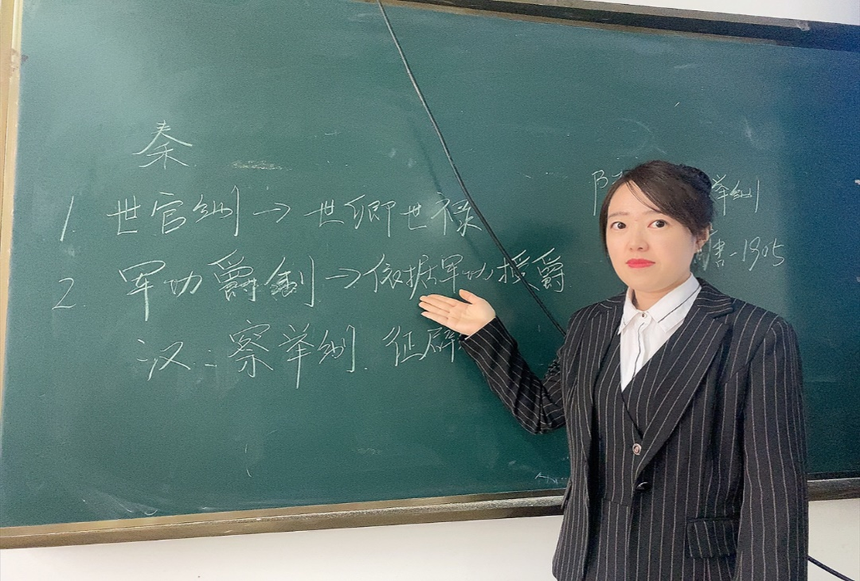 秦
1. 世官制→世卿世禄
2. 军功爵制→依据军功授爵
汉：察举制. 征辟
举制
唐-1905